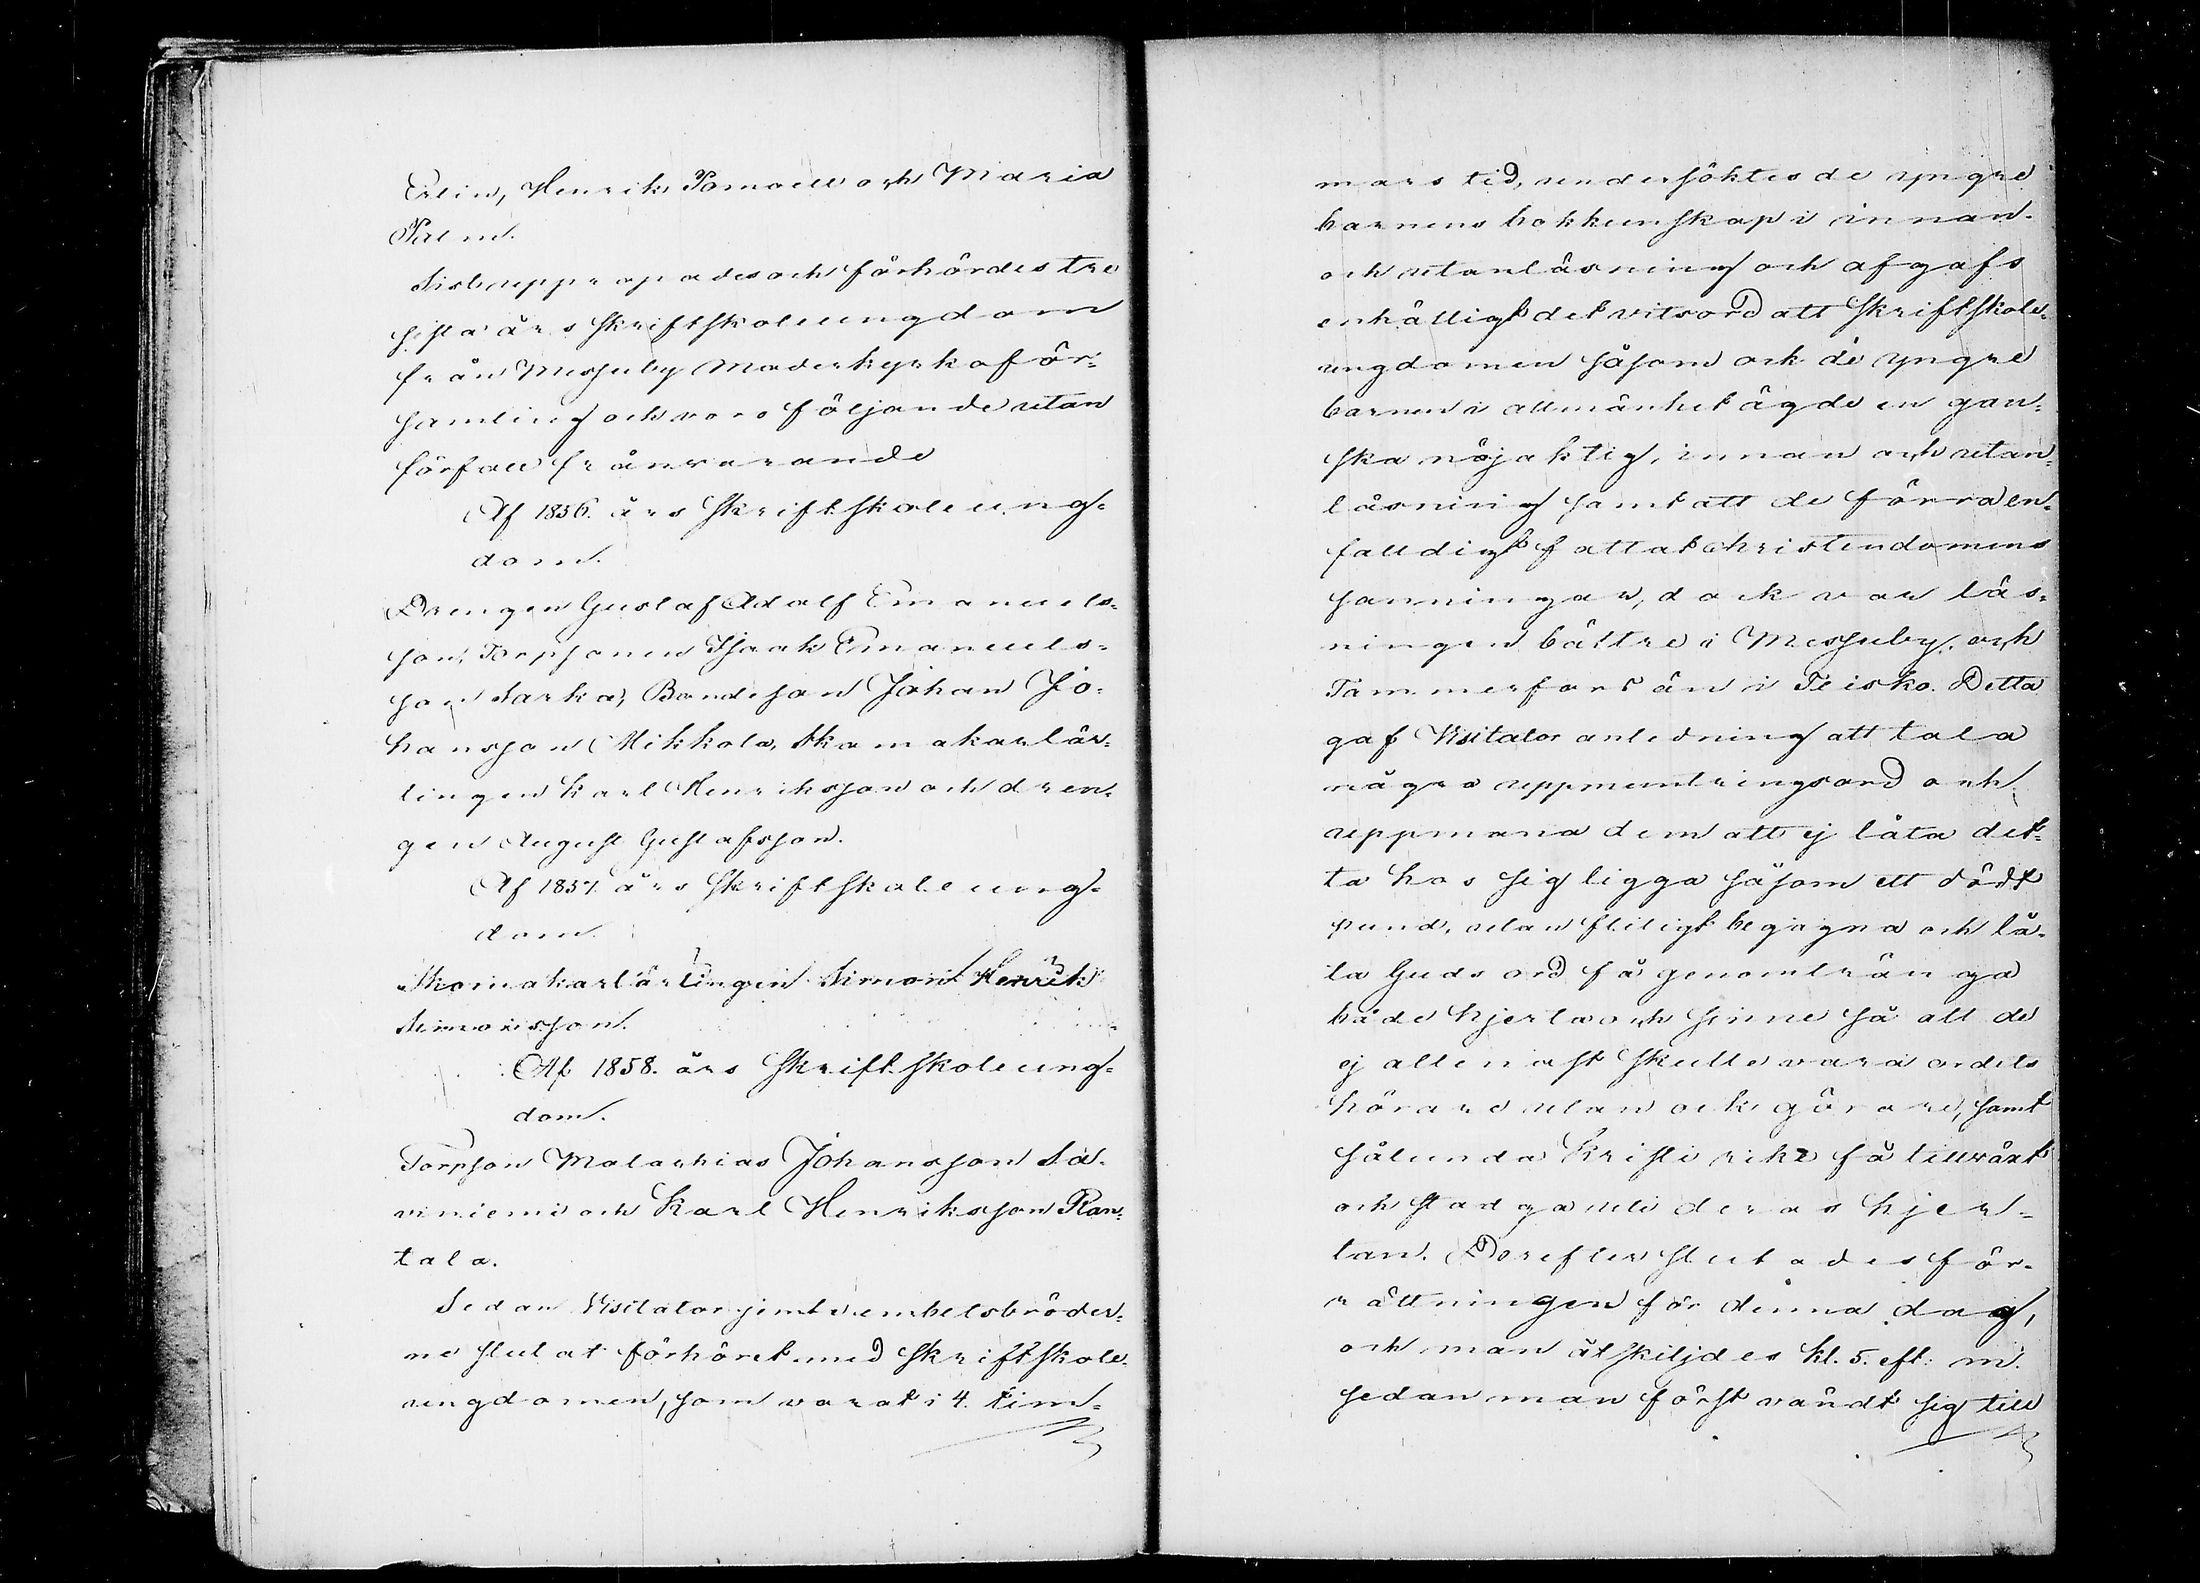 Erlin, Henrik Pomoell och Maria
Palm.
Sist uppropades och förhördes tre
sista års skriftskoleungdom
från Messuby Moderkyrkoför-
samling och voro följande utan
förfall frånvarande
Af 1856. års skriftskoleung-
dom.
Drengen Gustaf Adolf Emanuels-
son, Torpsonen Isaak Emanuels-
son Sarka, Bondeson Johan Jo-
hansson Mikkola, Skomakarlär-
lingen Karl Henriksson och dren-
gen August Gustafsson.
Af 1857. års skriftskoleung-
dom.
Skomakarlärlingen Simon Henrik
Simonsson.
Af 1858. års skriftskoleung-
dom.
Torpson Malachias Johansson Sa-
viniemi och Karl Henriksson Ran-
tala.
Sedan Visitator jemte embetsbröder-
ne slutat förhöret med skriftskole-
ungdomen, som varat i 4. tim-
mars tid, undersöktes de yngre
barnens bokkunskap i innan-
och utanläsning och afgafs
enhälligt det vitsord att skriftskole-
ungdomen såsom ock de yngre
barnen i allmänhet ägde en gan-
ska nöjaktig, innan och utan-
läsning samt att de förra en-
falldigt fattat christendomens
sanningar, dock var läs-
ningen bättre i Messuby och
Tammerfors än i Teisko. Detta
gaf Visitator anledning att tala
några uppmuntringsord och
uppmana dem att ej låta det-
ta hos sig ligga såsom ett dödt
pund, utan flitigt begagna och lå-
ta Guds ord få genomtränga
både hjerta och sinne så att de
ej allenast skulle vara ordets
hörare utan ock görare, samt
sålunda Kristi rike få tillväxt
och stadga uti deras hjer-
tan. Derefter slutades för-
rättningen för denna dag,
och man åtskiljdes kl. 5. eft: m.
sedan man först vändt sig till